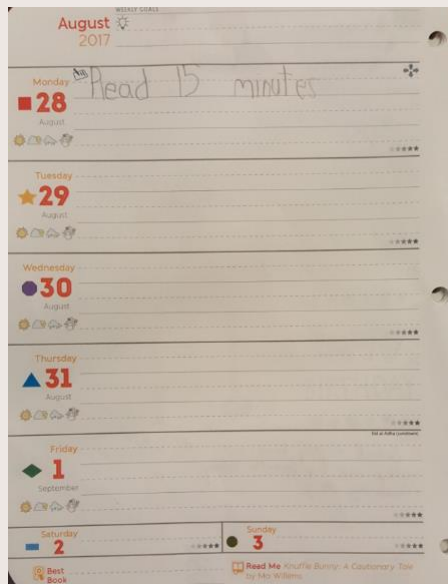 WEEKLY GOALS
August
2017
Monday
28
August
Read 15 minutes
Tuesday
29
August
Wednesday
30
August
Thursday
31
August
Eid al-Adha (sundown)
Friday
1
September
Saturday
2
Sunday
3
Best
Book
Read Me Knuffle Bunny: A Cautionary Tale
by Mo Willems